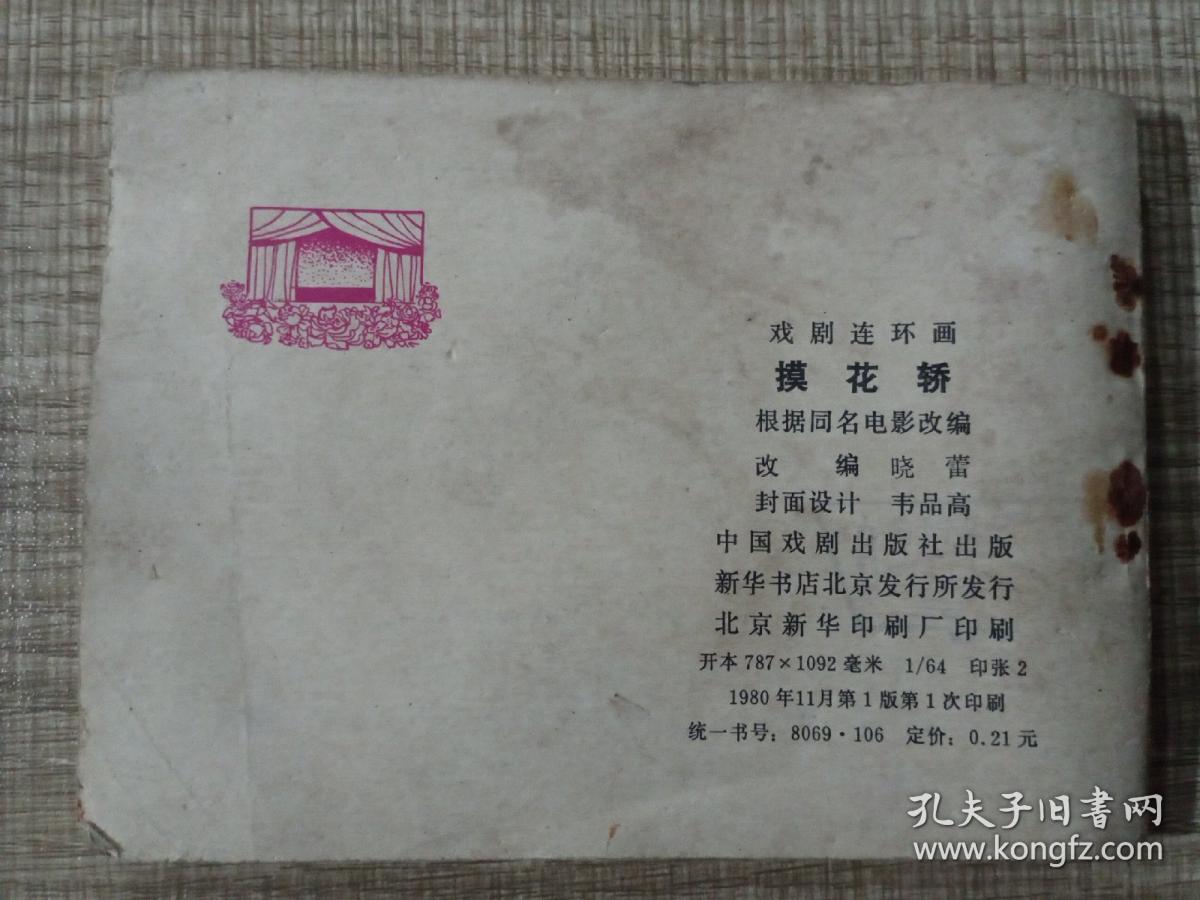 戏剧连环画
摸花轿
根据同名电影改编
改 编 晓 蕾
封面设计 韦品高
中国戏剧出版社出版
新华书店北京发行所发行
北京新华印刷厂印刷
开本 787×1092 毫米 1/64 印张 2
1980年11月第1版第1次印刷
统一书号：8069·106 定价：0.21元
孔夫子旧書网
www.kongfz.com